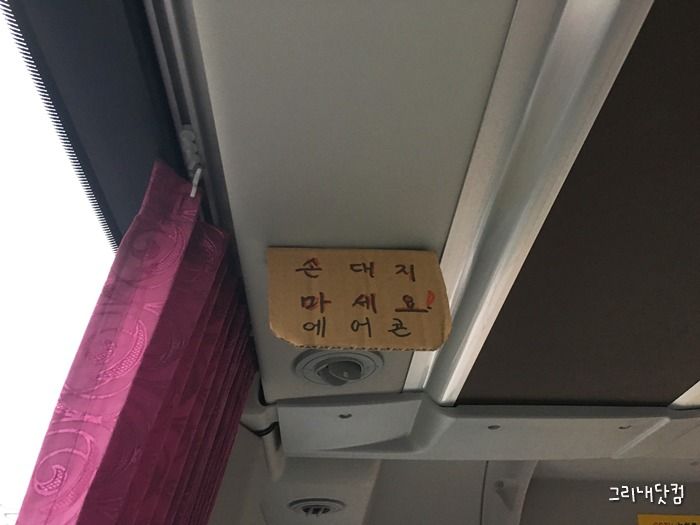 손 대지
마세요!
에어콘
그리내닷컴